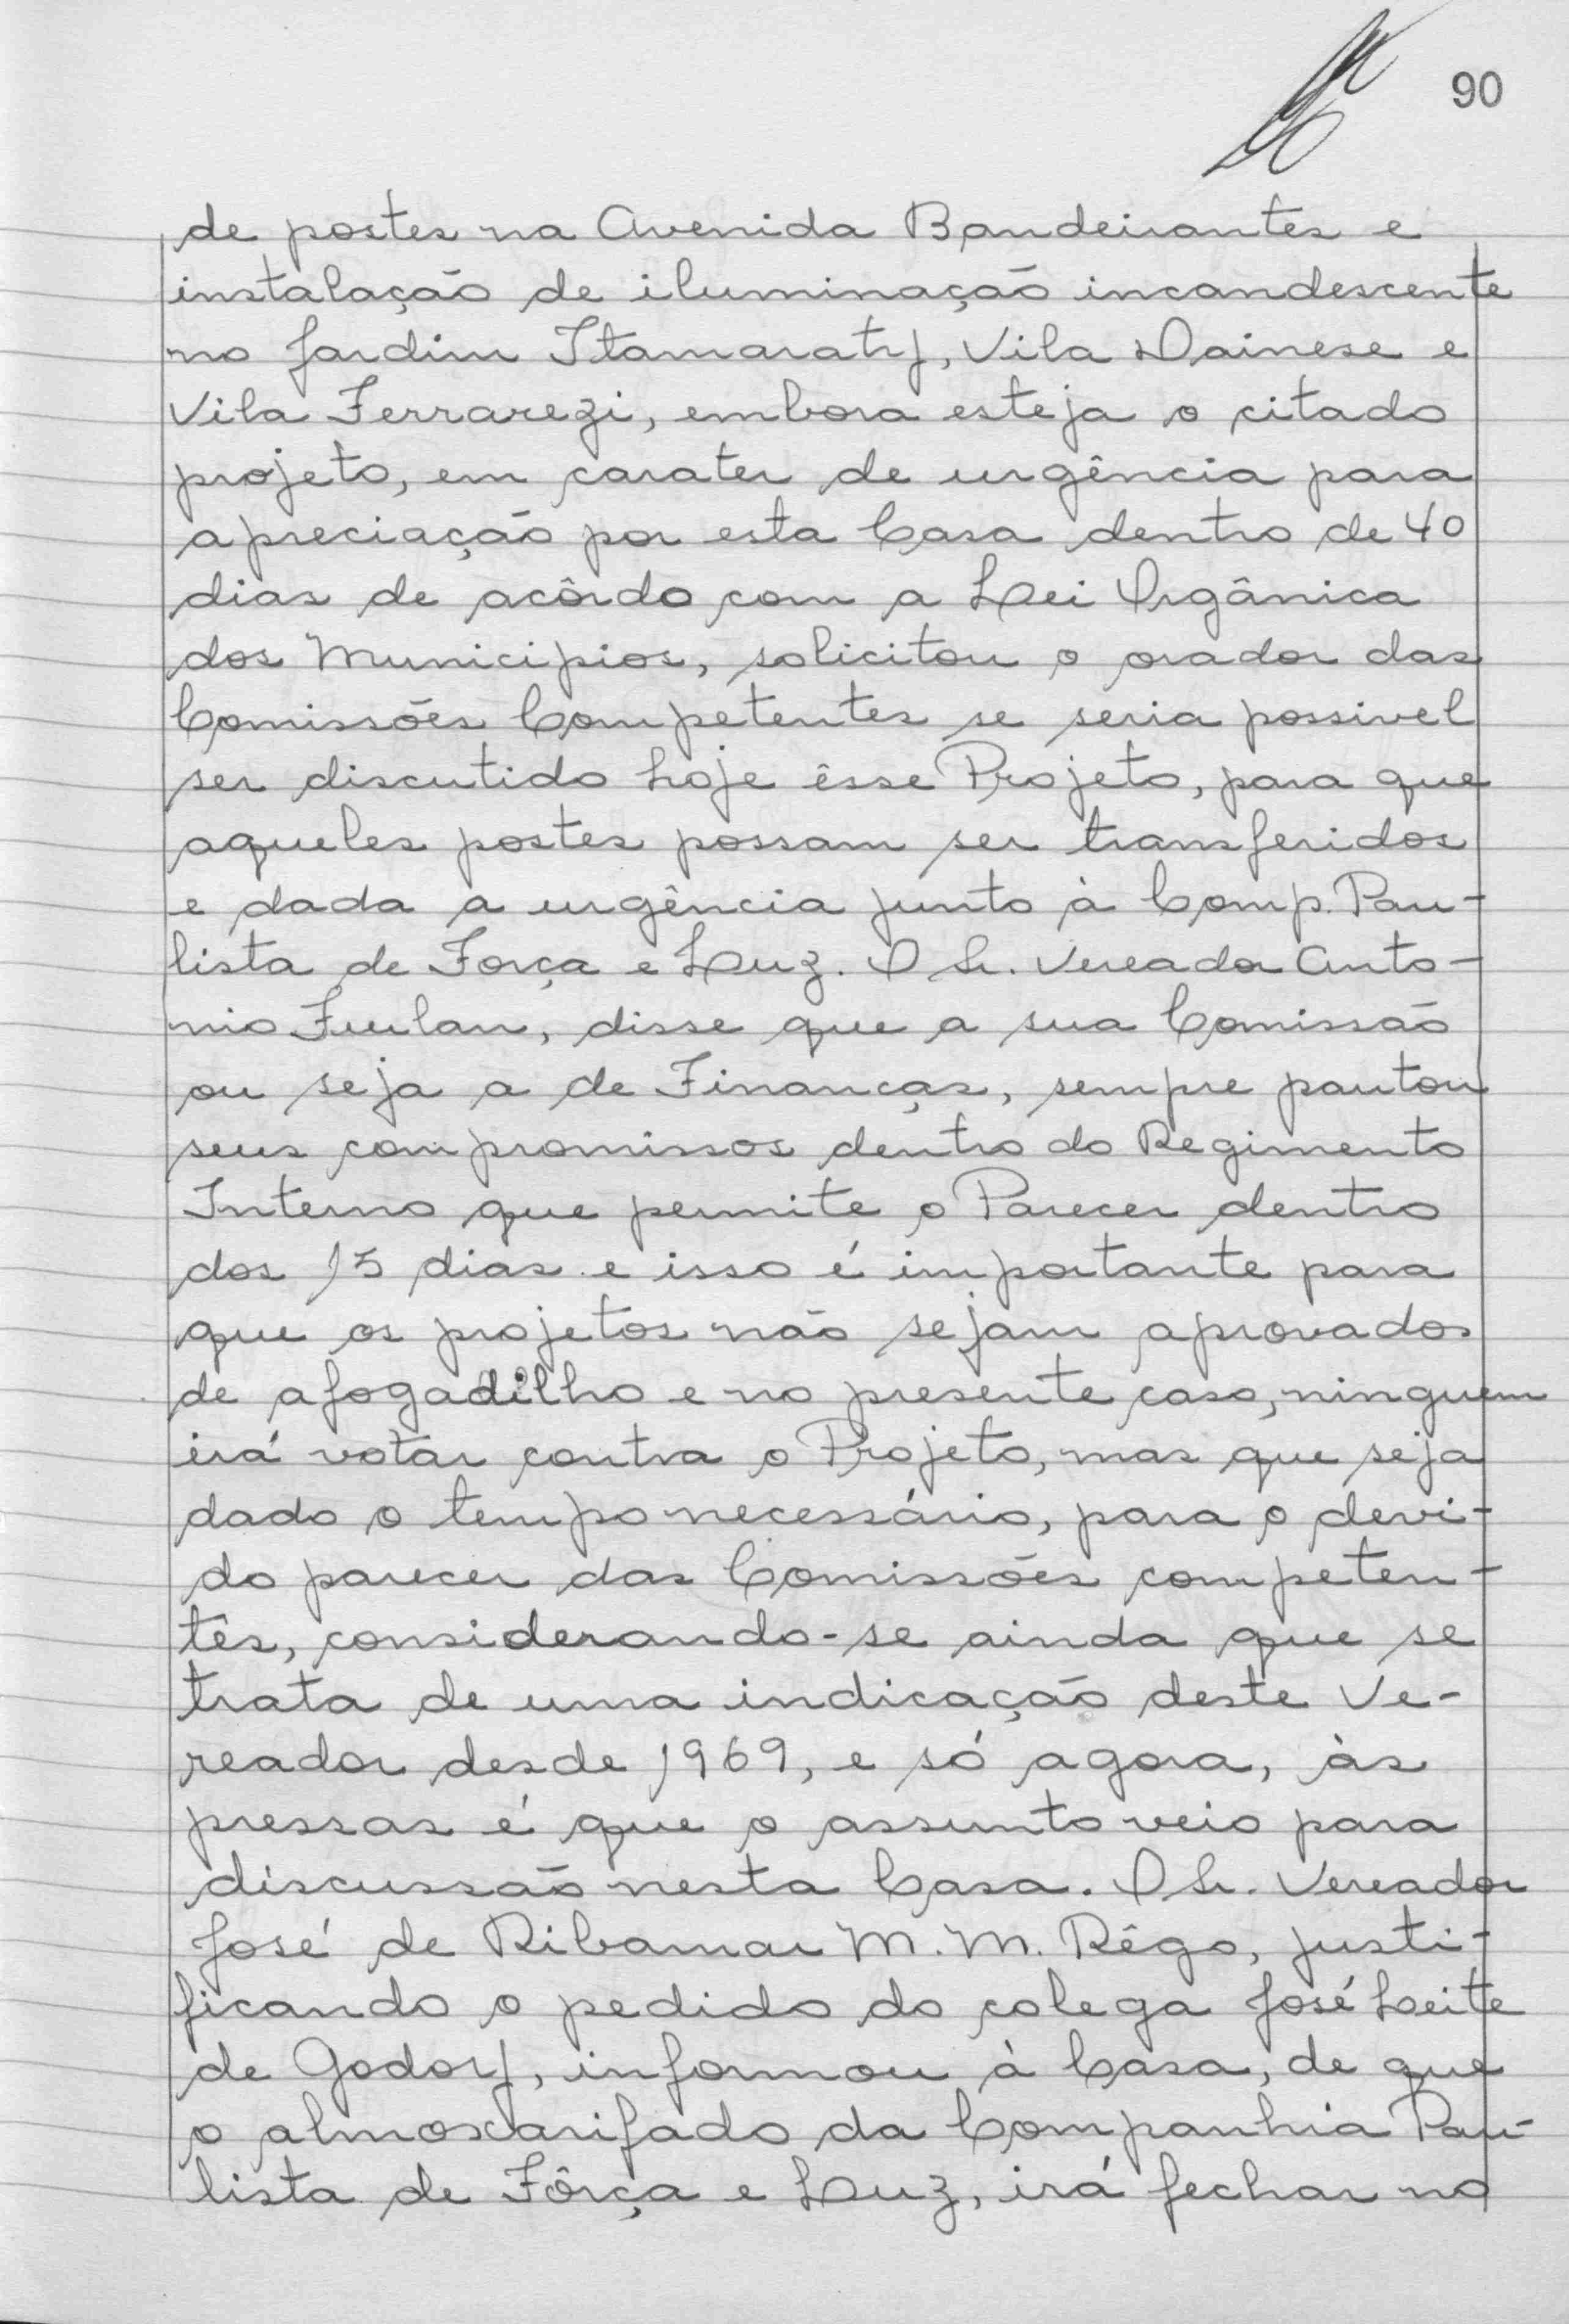 90
de postes na Avenida Bandeirantes e
instalação de iluminação incandescente
no Jardim Itamaraty, Vila Dainese e
Vila Ferrarezi, embora esteja o citado
projeto, em carater de urgência para
apreciação por esta Casa dentro de 40
dias de acôrdo com a Lei Orgânica
dos Municipios, solicitou o orador das
Comissões Competentes se seria possivel
ser discutido hoje êsse Projeto, para que
aqueles postes possam ser transferidos
e dada a urgência junto à Comp. Pau-
lista de Força e Luz. O Sr. Vereador Anto-
nio Furlan, disse que a sua Comissão
ou seja a de Finanças, sempre pautou
seus compromissos dentro do Regimento
Interno que permite o Parecer dentro
dos 15 dias e isso é importante para
que os projetos não sejam aprovados
de afogadilho e no presente caso, ninguem
irá votar contra o Projeto, mas que seja
dado o tempo necessário, para o devi-
do parecer das Comissões competen-
tes, considerando-se ainda que se
trata de uma indicação deste Ve-
reador desde 1969, e só agora, às
pressas é que o assunto veio para
discussão nesta Casa. O Sr. Vereador
José de Ribamar M. M. Rêgo, justi-
ficando o pedido do colega José Leite
de Godoy, informou à Casa, de que
o almoxarifado da Companhia Pau-
lista de Fôrça e Luz, irá fechar no